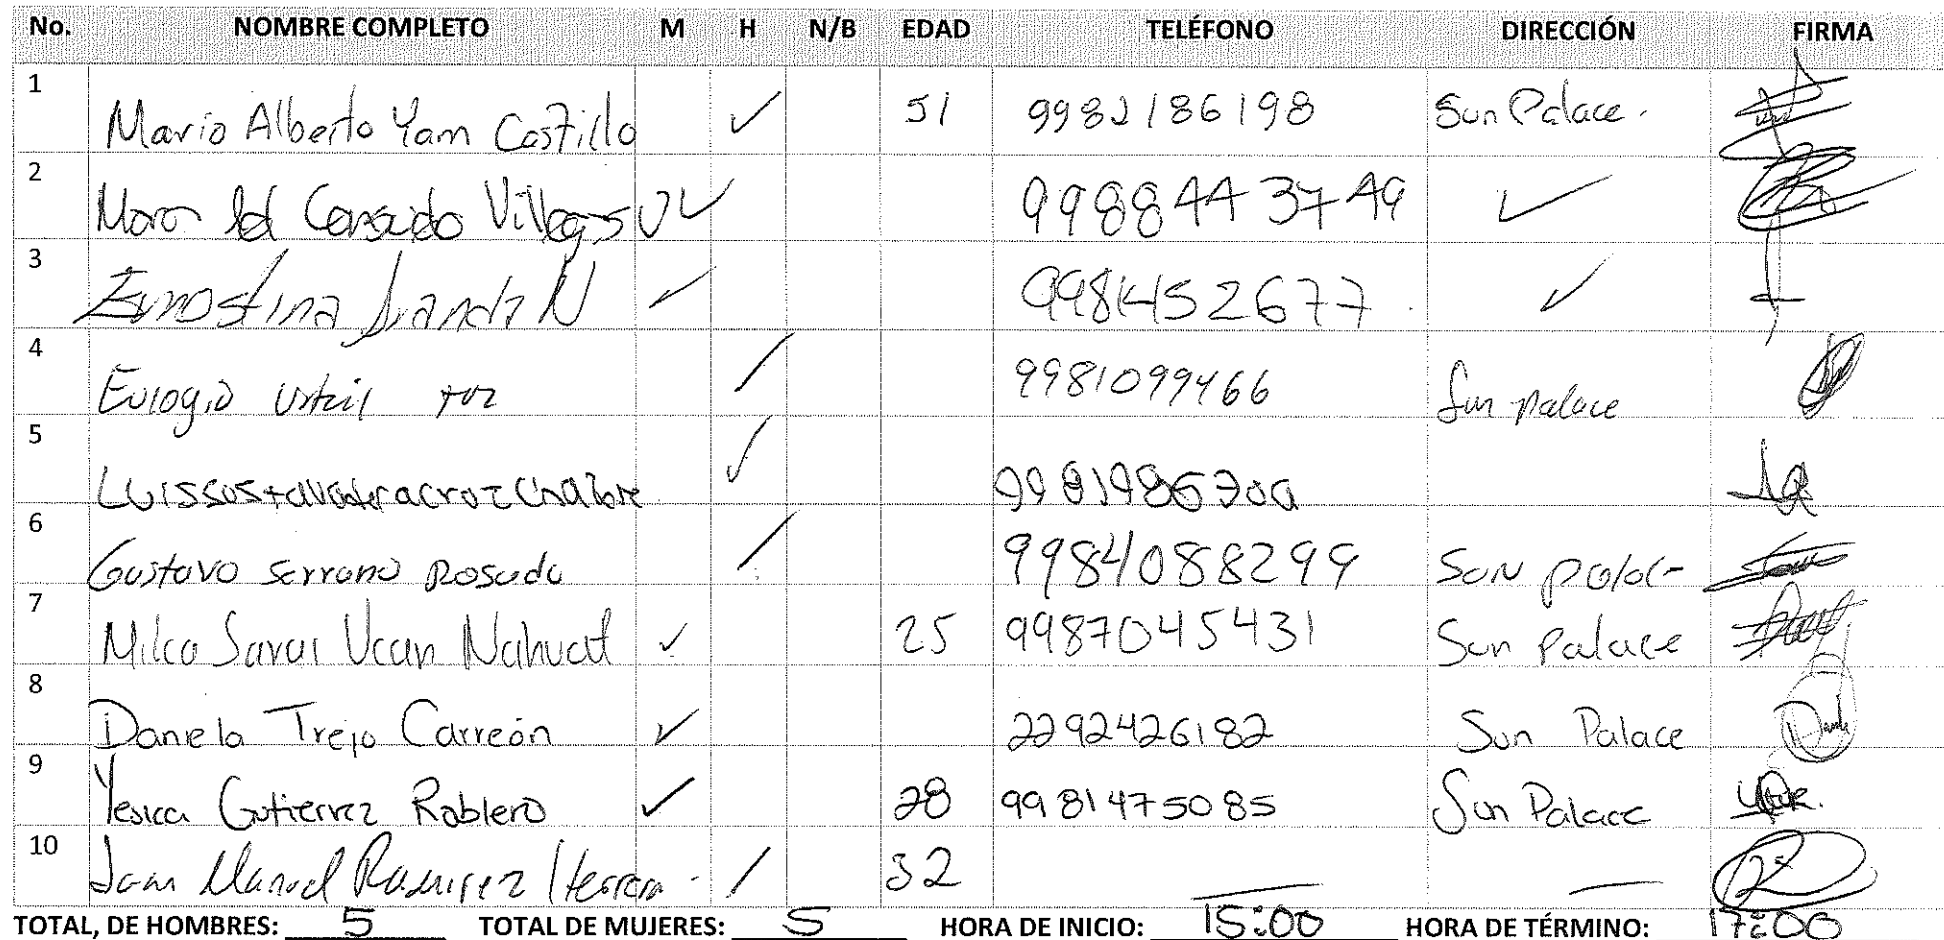 No. NOMBRE COMPLETO M H N/B EDAD TELÉFONO DIRECCIÓN FIRMA
1 Mario Alberto Yam Castillo ✓ 51 9982186198 Sun Palace.
2 Villegas ✓ 9988443749 ✓
3 ✓ 9981452677 ✓
4 Eulogio / 9981099466 Sun palace
5 ✓
6 Gustavo serrano Rosado / 9984088299 SUN
7 Milca Sarai Ucan Nahuat ✓ 25 9987045431 Sun palace
8 Daniela Trejo Carreón ✓ 2292426182 Sun Palace
9 Yesica Gutierrez Roblero ✓ 28 9981475085 Sun Palace
10 Manuel Ramirez Herrera / 32 — —
TOTAL, DE HOMBRES: 5 TOTAL DE MUJERES: 5 HORA DE INICIO: 15:00 HORA DE TÉRMINO: 17:00